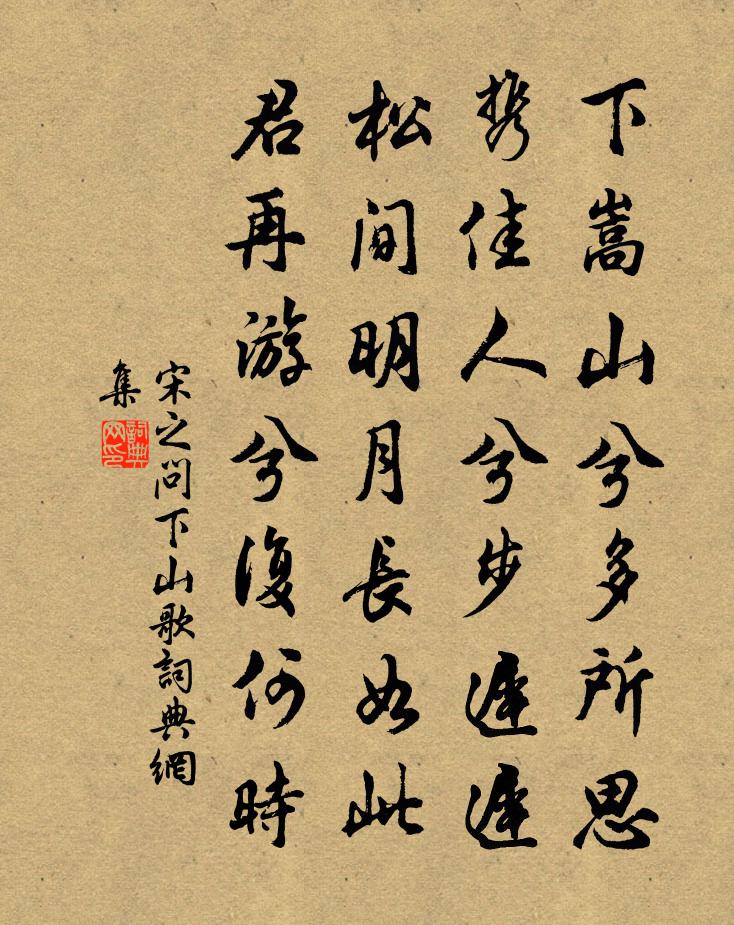 下嵩山兮多所思
携佳人兮步遲遲
松間明月長如此
君再游兮復何時
宋之問下山歌詞典網
集
詞典
网印